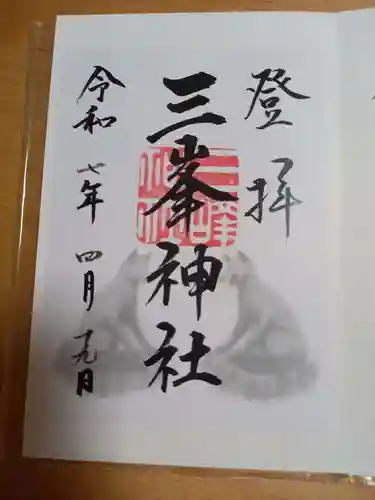 登拝
三峯神社
令和七年四月十九日